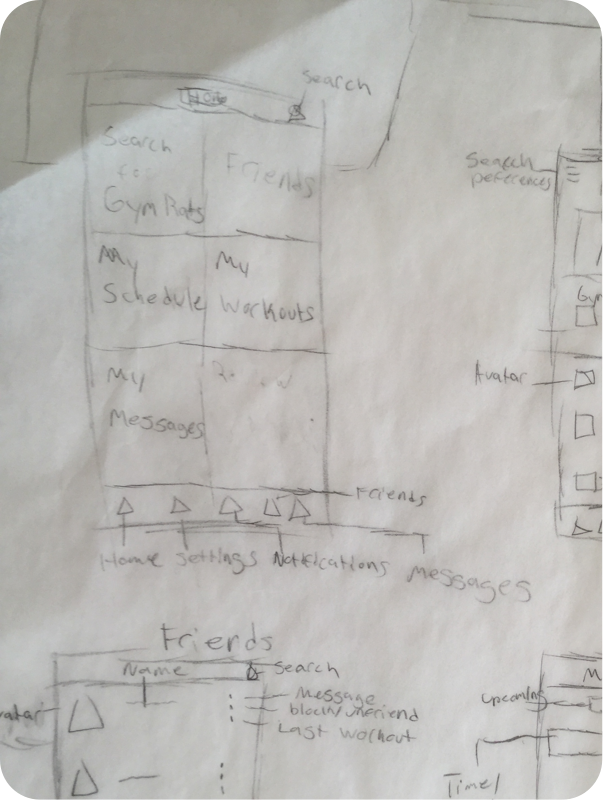 Search
Home
Search
for
Gym Rats
Friends
My
Schedule
My
Workouts
My
Messages
Friends
Home
Settings
Notifications
Messages
Search
peferences
Gy
Avatar
Friends
Name
Search
Message
block/unfriend
Last workout
vatar
M
upcoming
Time/